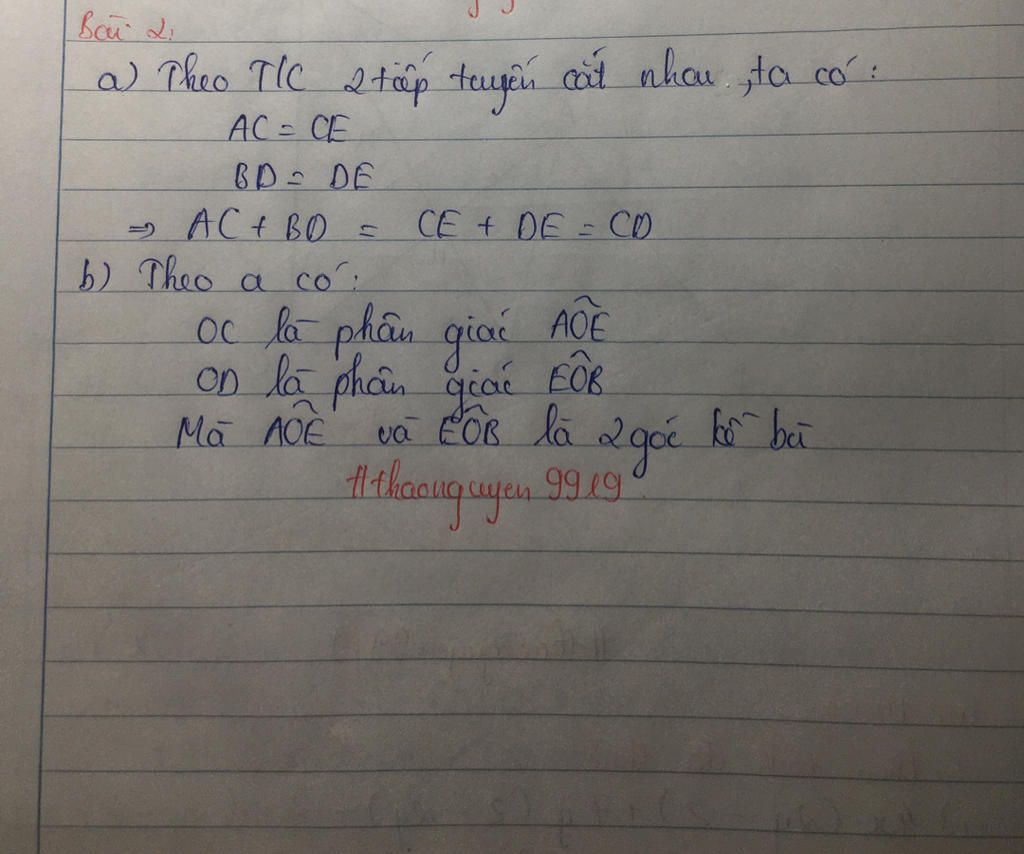 Bài 2:
a) Theo T/C 2 tiếp tuyến cắt nhau, ta có:
AC = CE
BD = DE
=> AC + BD = CE + DE = CD
b) Theo a có:
OC là phân giác AÔE
OD là phân giác EÔB
Mà AÔE và EÔB là 2 góc kề bù
#thaonguyen9919